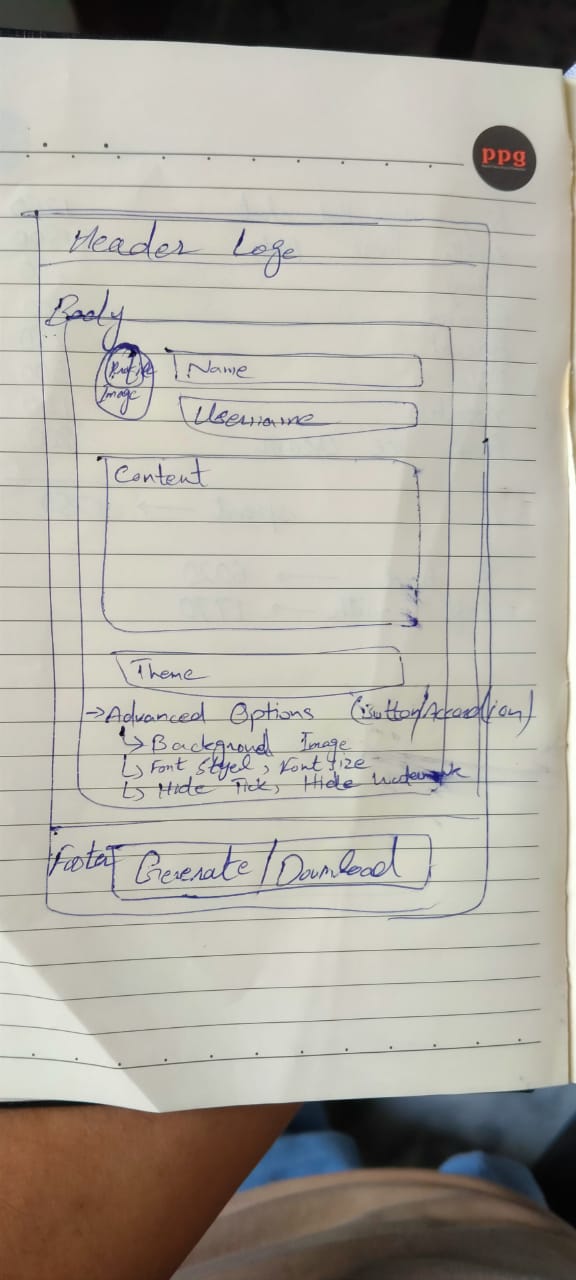 ppg
Header Logo
Body
Profile
Image
Name
Username
Content
Theme
→ Advanced Options (Button/Accordion)
↳ Background Image
↳ Font Styel, Font Size
↳ Hide Tick, Hide
Footer
Generate/Download